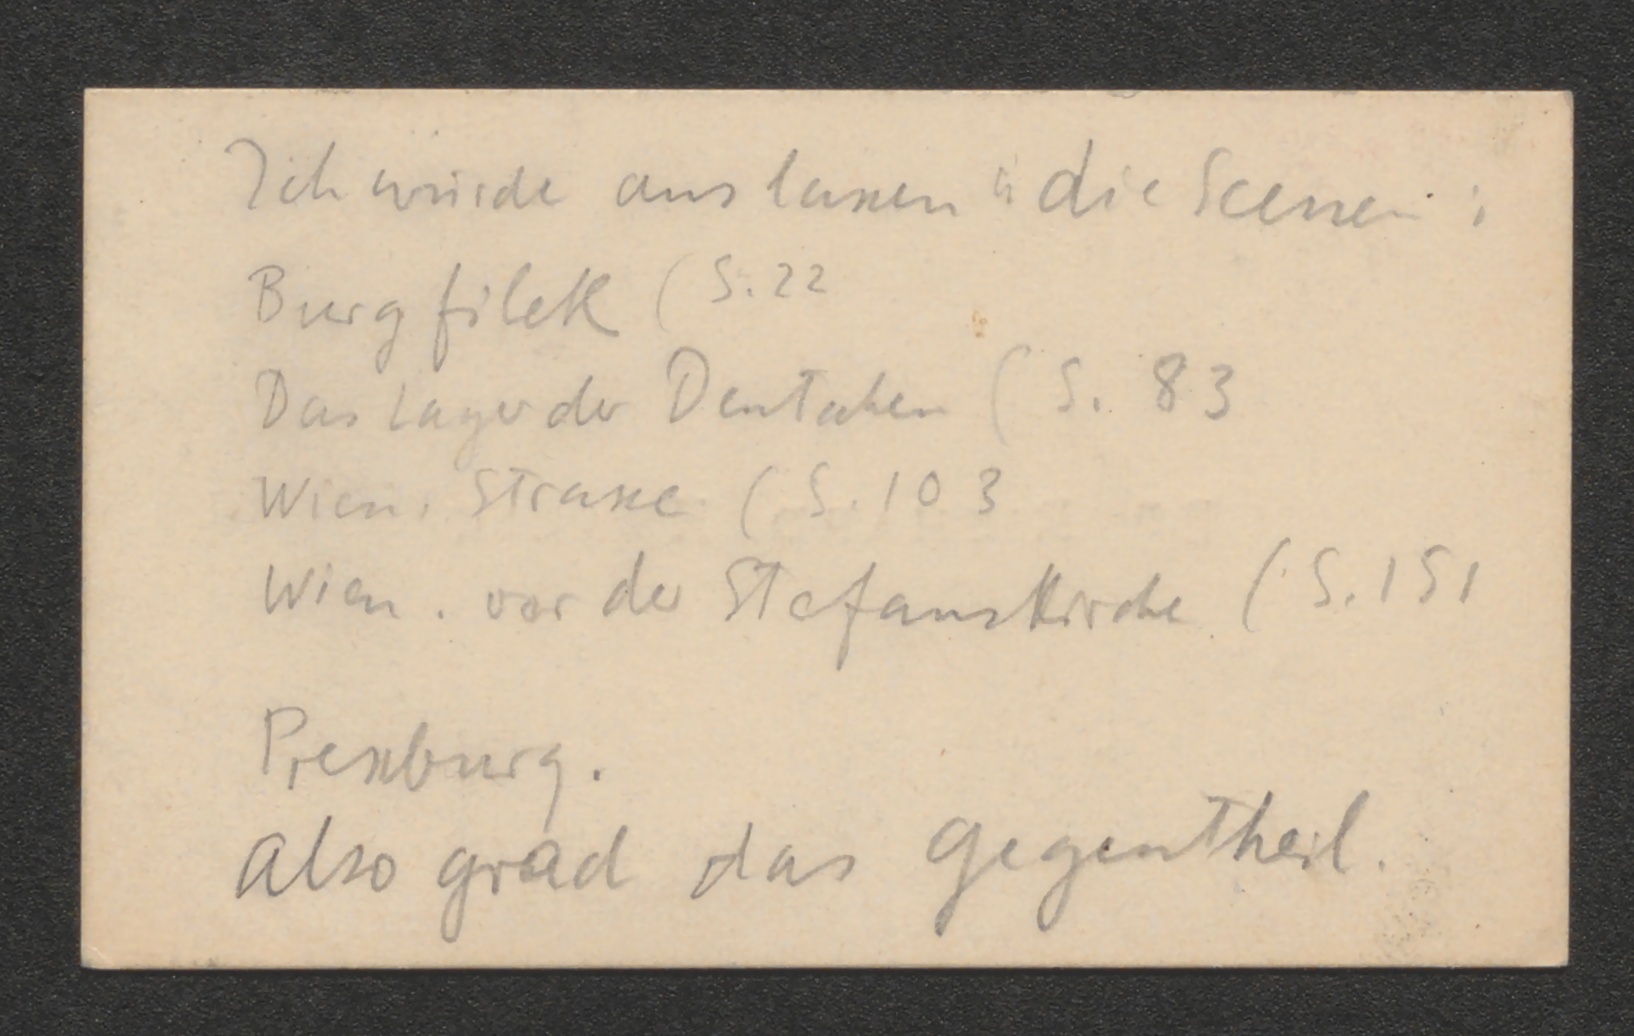 Ich würde auslassen die Scenen:
Burg filek (S. 22
Das Lager der Deutschen (S. 83
Wien. Strasse (S. 103
Wien. vor der Stefanskirche (S. 151
Pressburg.
Also grad das Gegentheil.